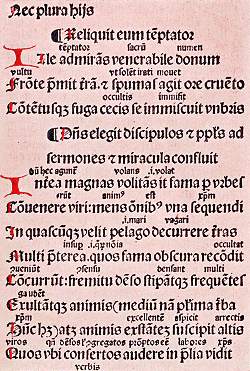 Nec plura hijs
¶ Reliquit eum tẽptator
tẽptator sacrũ numen
Ille admirãs venerabile donum
vultu vt solẽt irati mouet
Frõte p̃mit fr̃a. ⁊ spumas agit ore cruẽto
occultis immisit
Cõtẽtusq̃ꝫ fuga cecis se immiscuit vmbris
¶ Dñs elegit discipulos ⁊ pp̃ls ad
sermones ⁊ miracula confluit
volans .i. volat
Intea magnas volitãs it fama p̱ vrbes
erũt animꝰ est xp̃m
Conuenere viri: mens õnibꝰ vna sequendi
.i. mari vagari
In quascũqꝫ velit pelago decurrere t̃ras
insup occultat
Multi p̃terea. quos fama obscura recõdit
ꝯueniũt ꝯsensu densant multi
Cõcurrũt: fremitu dẽso stipãtqꝫ frequẽtes
gaudẽt
Exultãtqꝫ animis (mediũ nã p̃xima t̃ba
xp̃m excellentẽ aspicit arrectis
Hũc hꝫ) atqꝫ animis exstãtẽ suscipit altis
viros labores xp̃m
Quos vbi consertos audere in p̱lia vidit
verbis